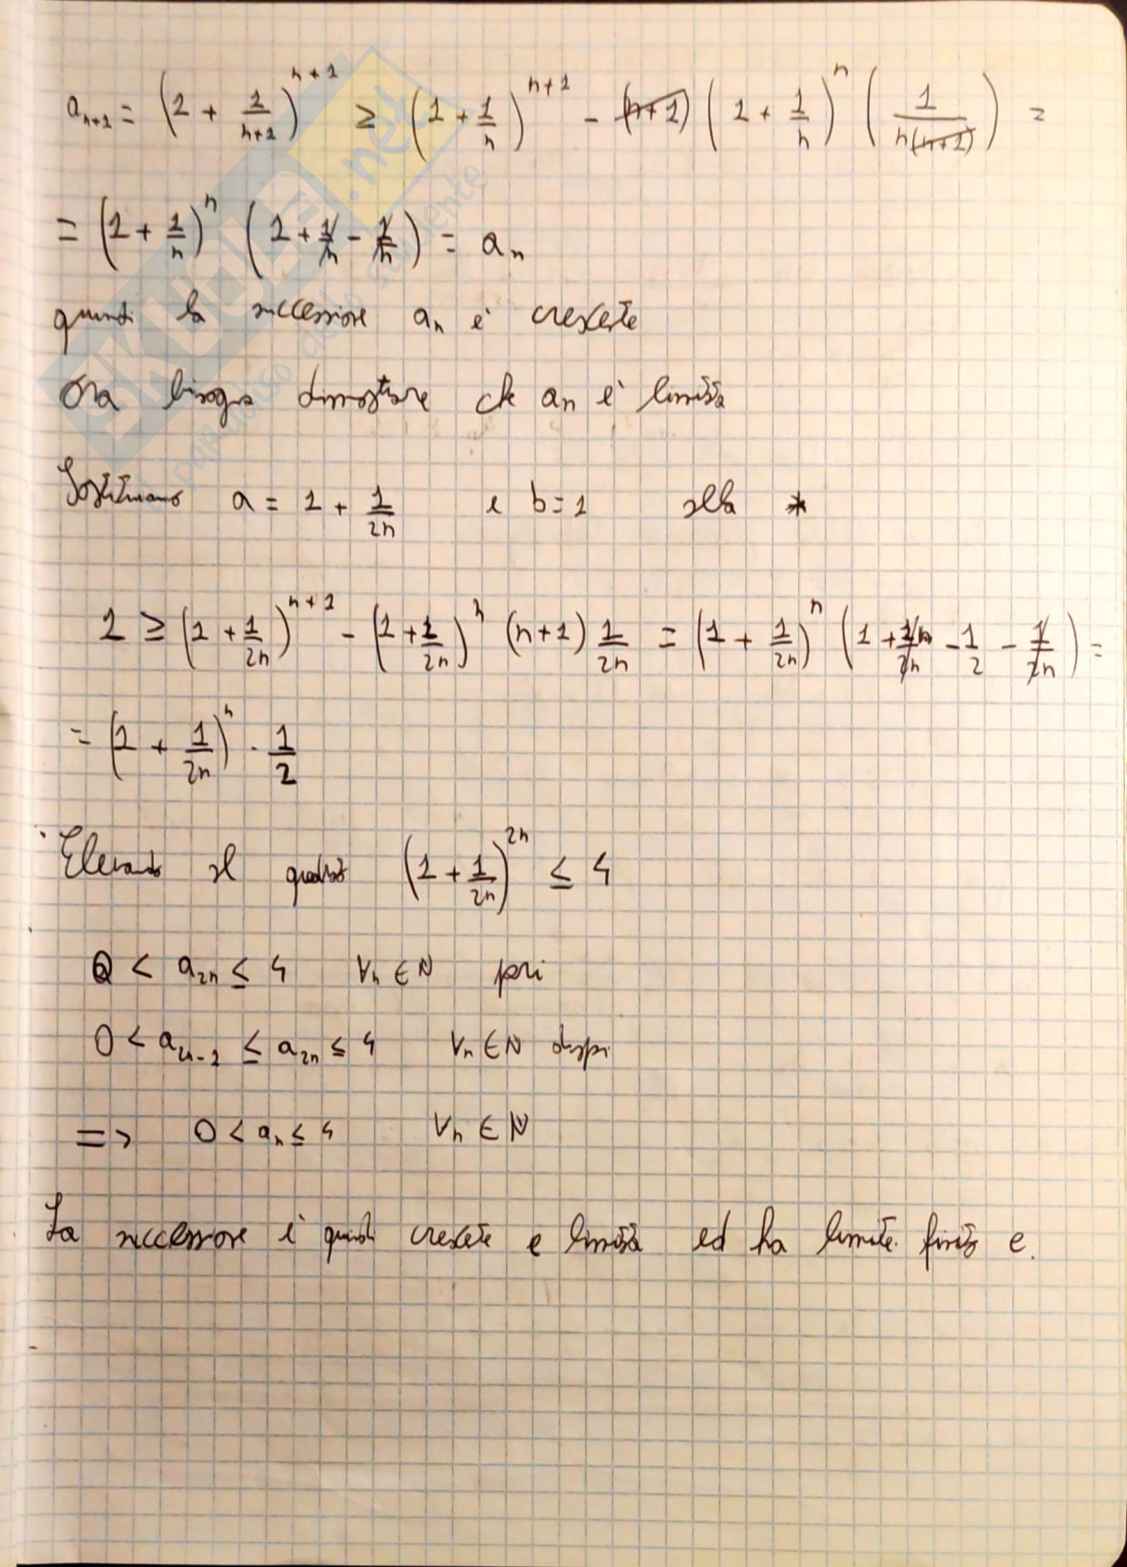 a_{n+1} = (1 + 1/(n+1))^{n+1} ≥ (1 + 1/n)^{n+1} - (n+1) (1 + 1/n)^n (1/(n(n+1))) =
= (1 + 1/n)^n (1 + 1/n - 1/n) = a_n
quindi la successione a_n è crescente
Ora bisogna dimostrare che a_n è limitata
Sostituiamo a = 1 + 1/2n e b = 1 nella *
1 ≥ (1 + 1/2n)^{n+1} - (1 + 1/2n)^n (n+1) 1/2n = (1 + 1/2n)^n (1 + 1/2n - 1/2 - 1/2n) =
= (1 + 1/2n)^n · 1/2
Elevando al quadrato (1 + 1/2n)^{2n} ≤ 4
0 < a_{2n} ≤ 4 ∀n ∈ N pari
0 < a_{2n-1} ≤ a_{2n} ≤ 4 ∀n ∈ N dispari
=> 0 < a_n ≤ 4 ∀n ∈ N
La successione è quindi crescente e limitata ed ha limite finito e.